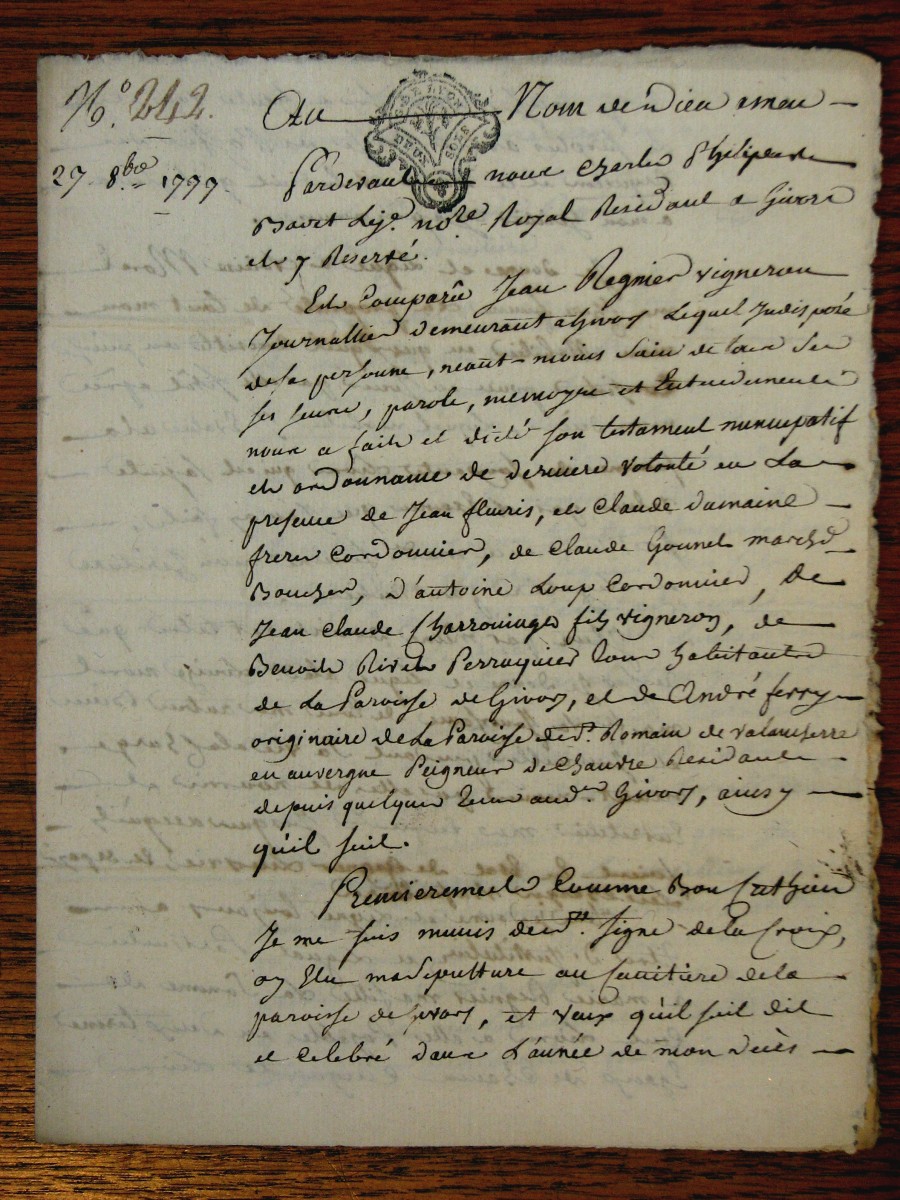 N.º 242.
Au Nom de Dieu amen
DE LYON
DEUX SOLS
27 8.bre 1777.
Pardevant nous Charles Phelipe
not.re Royal Residant a Givors
et y Reservé.
Est Comparû Jean Regnier vigneron
Journallier demeurant a Givors Lequel Indisposé
de sa personne, neant-moins Sain de tous ses
sens, parole, memoyre et Entendement
nous a fait et dicté son testament nuncupatif
et ordonnance de derniere volonté en La
presence de Jean fleuris, et Claude Dumaine
freres Cordonnier, de Claude Gounet march.d
Boucher, d'antoine Loup Cordonnier, de
Jean Claude fils vigneron, de
Benoit Rivet Perruquier tous habitants
de La Paroisse de Givors, et de André ferry
originaire de La Paroisse de S.t Romain de
en auvergne Peigneur de Chanvre Residant
depuis quelques tems aud. Givors, ainsy
qu'il suit.
Premierement Comme Bon
Je me suis munis du Signe de la Croix,
ay Elu ma sepulture au de la
paroisse de Givors, et veux qu'il soit dit
et Celebré dans L'année de mon decès